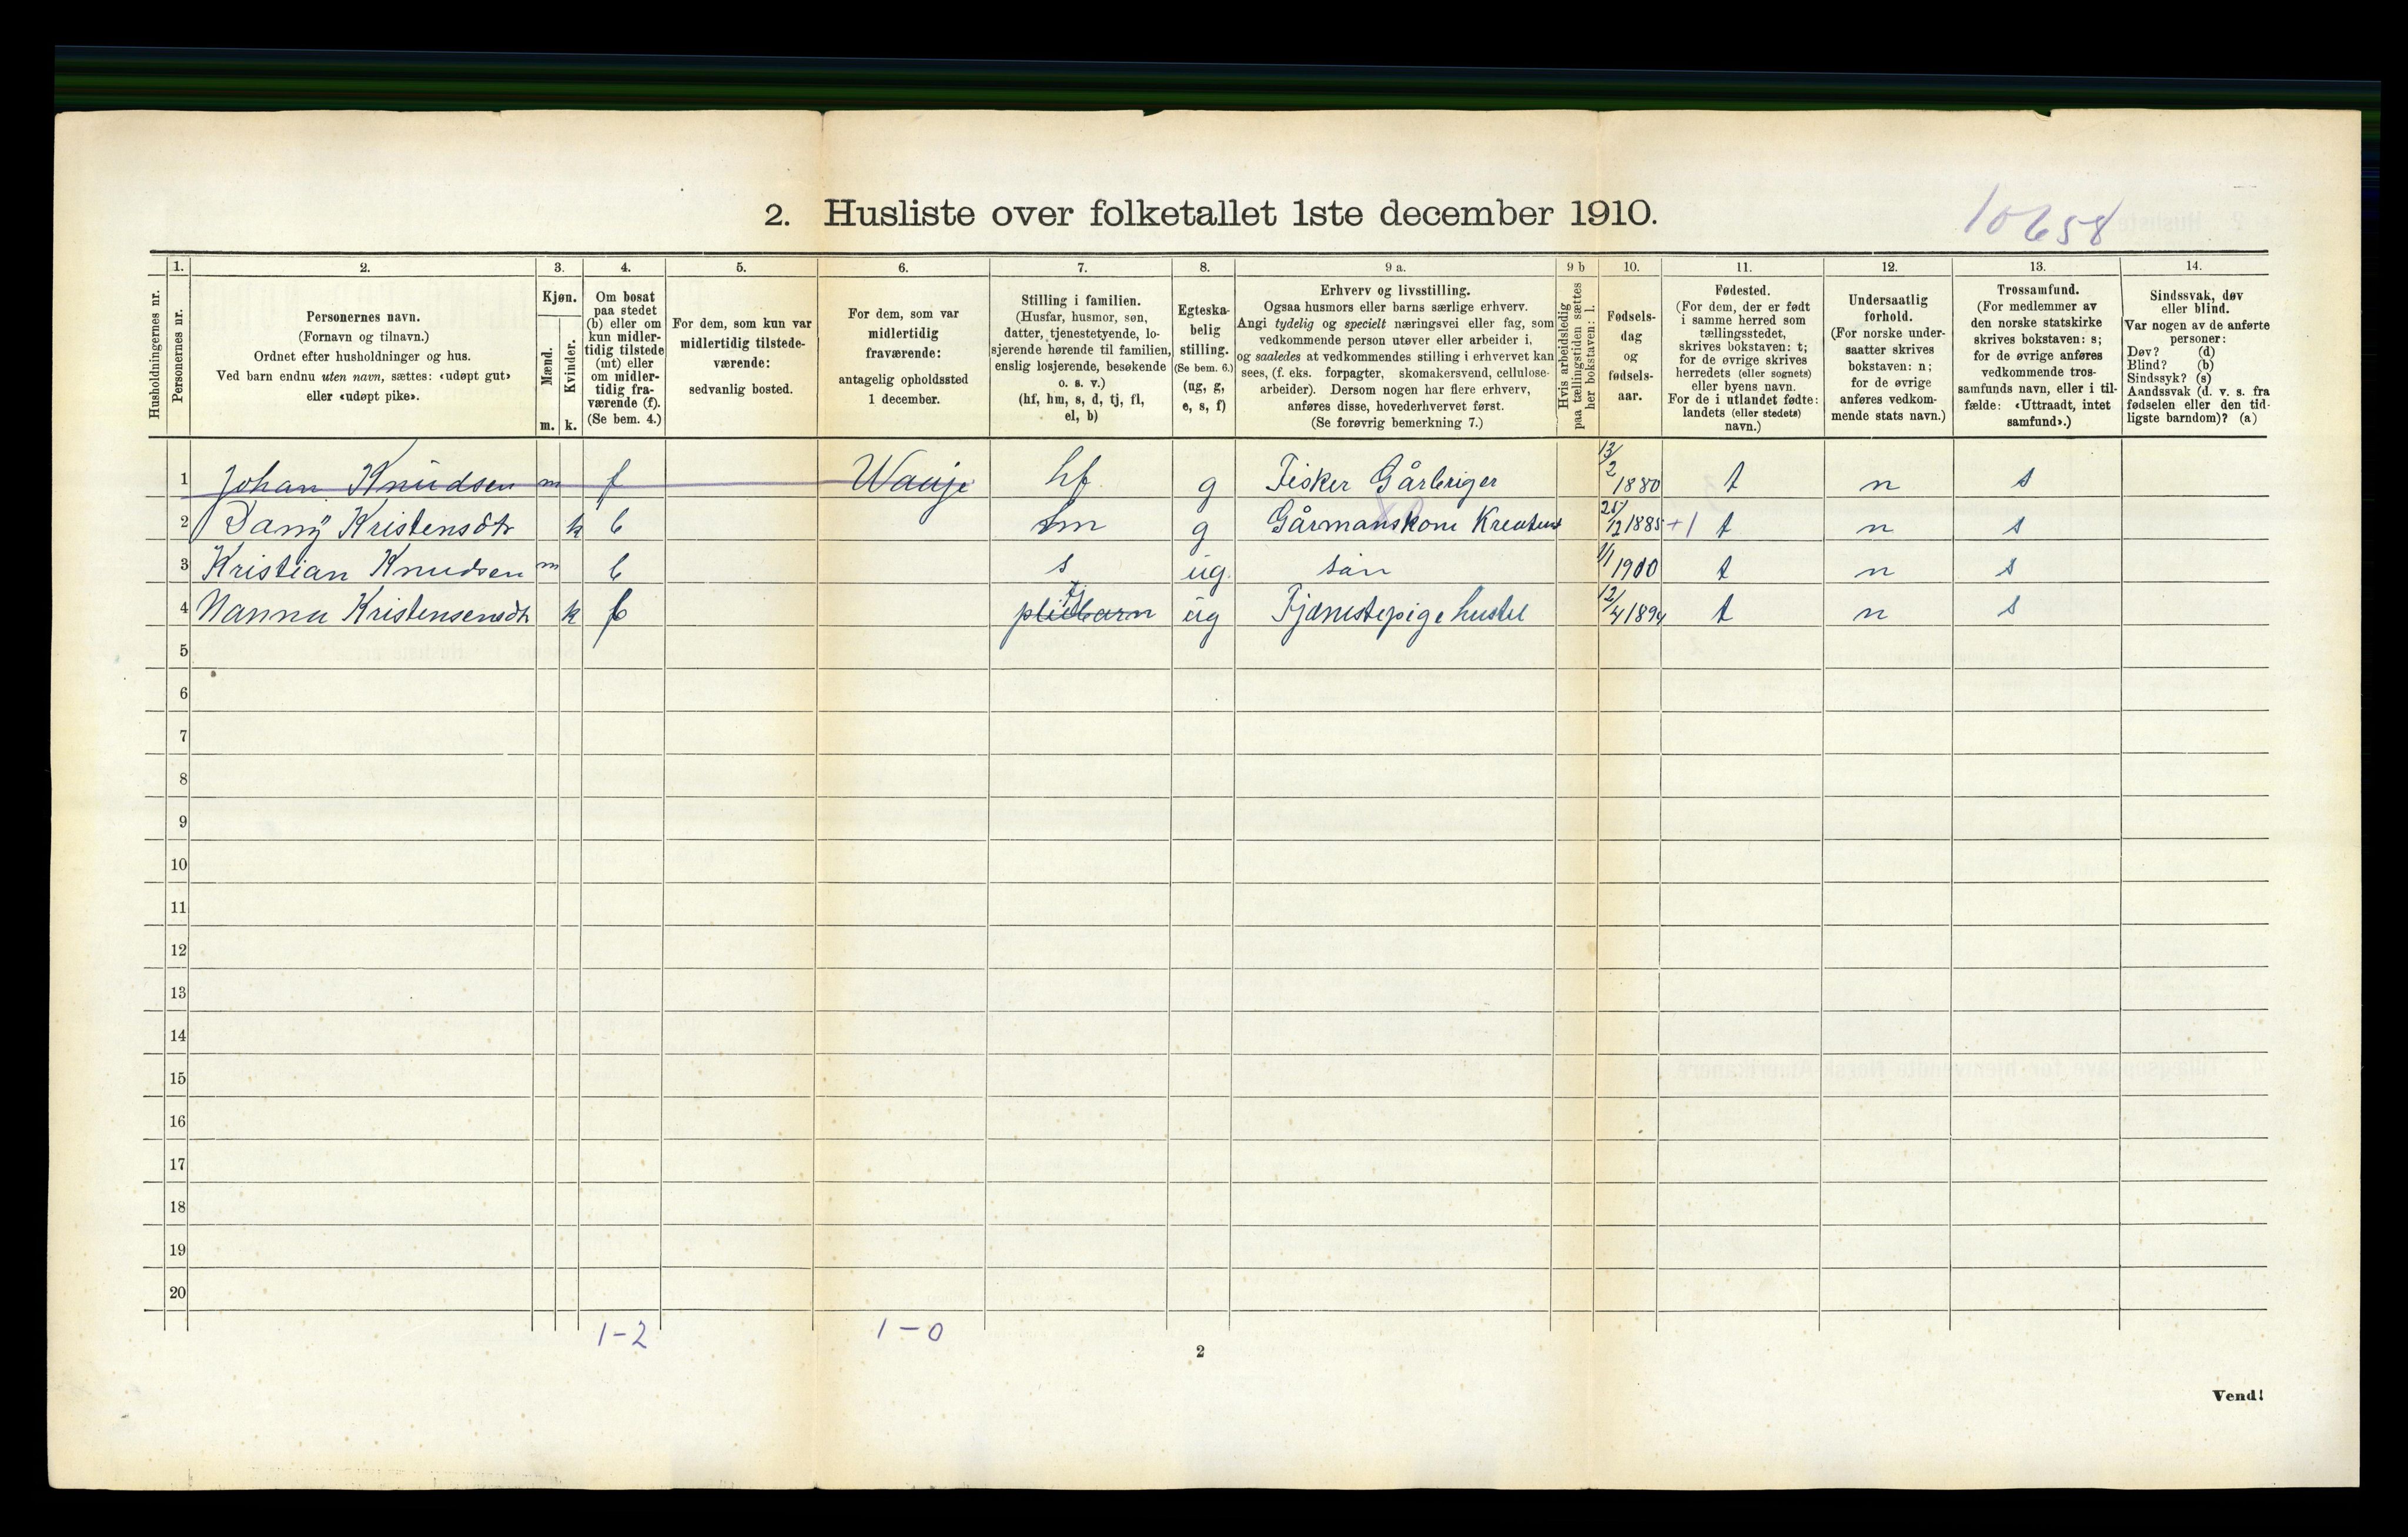 2. Husliste over folketallet 1ste december 1910.
10658
Husholdningernes nr.
1.
Personernes nr.
2.
Personernes navn.
(Fornavn og tilnavn.)
Ordnet efter husholdninger og hus.
Ved barn endnu uten navn, sættes: «udøpt gut»
eller «udøpt pike».
3.
Kjøn.
Mænd.
Kvinder.
m. k.
4.
Om bosat
paa stedet
(b) eller om
kun midler-
tidig tilstede
(mt) eller
om midler-
tidig fra-
værende (f).
(Se bem. 4.)
5.
For dem, som kun var
midlertidig tilstede-
værende:
sedvanlig bosted.
6.
For dem, som var
midlertidig
fraværende:
antagelig opholdssted
1 december.
7.
Stilling i familien.
(Husfar, husmor, søn,
datter, tjenestetyende, lo-
sjerende hørende til familien,
enslig losjerende, besøkende
o. s. v.)
(hf, hm, s, d, tj, fl,
el, b)
8.
Egteska-
belig
stilling.
(Se bem. 6.)
(ug, g,
e, s, f)
9 a.
Erhverv og livsstilling.
Ogsaa husmors eller barns særlige erhverv.
Angi tydelig og specielt næringsvei eller fag, som
vedkommende person utøver eller arbeider i,
og saaledes at vedkommendes stilling i erhvervet kan
sees, (f. eks. forpagter, skomakersvend, cellulose-
arbeider). Dersom nogen har flere erhverv,
anføres disse, hovederhvervet først.
(Se forøvrig bemerkning 7.)
9 b
Hvis arbeidsledig
paa tællingstiden sættes
her bokstaven: l.
10.
Fødsels-
dag
og
fødsels-
aar.
11.
Fødested.
(For dem, der er født
i samme herred som
tællingsstedet,
skrives bokstaven: t;
for de øvrige skrives
herredets (eller sognets)
eller byens navn.
For de i utlandet fødte:
landets (eller stedets)
navn.)
12.
Undersaatlig
forhold.
(For norske under-
saatter skrives
bokstaven: n;
for de øvrige
anføres vedkom-
mende stats navn.)
13.
Trossamfund.
(For medlemmer av
den norske statskirke
skrives bokstaven: s;
for de øvrige anføres
vedkommende tros-
samfunds navn, eller i til-
fælde: «Uttraadt, intet
samfund».)
14.
Sindssvak, døv
eller blind.
Var nogen av de anførte
personer:
Døv? (d)
Blind? (b)
Sindssyk? (s)
Aandssvak (d. v. s. fra
fødselen eller den tid-
ligste barndom)? (a)
1 Johan Knudsen m f Waaje hf g Fisker Gårbriger 13/2 1880 t n s
2 Dany Kristensdtr k b hm g Gårmanskone 25/12 1885 +1 t n s
3 Kristian Knudsen m b s ug sån 1/1 1910 t n s
4 Nanna Kristensensdtr k b tj ug Tjænestepige hustel 12/4 1894 t n s
5
6
7
8
9
10
11
12
13
14
15
16
17
18
19
20
1-2 1-0
2
Vend!